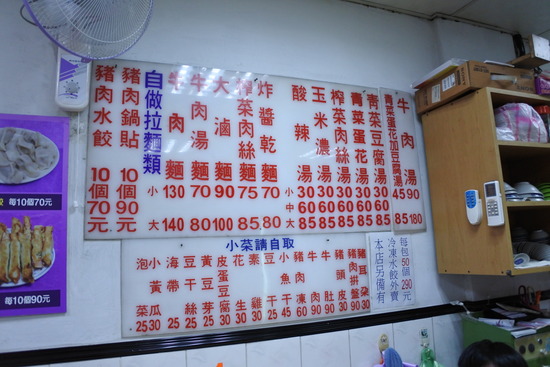 豬肉水餃 10個70元
豬肉鍋貼 10個90元
自做拉麵類
牛肉麵 小130 大140
牛肉湯麵 70 80
大滷麵 90 100
榨菜肉絲麵 75 85
炸醬乾麵 70 80
酸辣湯 小30 中60 大85
玉米濃湯 30 60 85
榨菜肉絲湯 30 60 85
青菜蛋花湯 30 60 85
青菜豆腐湯 30 60 85
青菜蛋花加豆腐湯 45 85
牛肉湯 90 180
小菜請自取
泡菜 25
小黃瓜 30
海帶 25
豆干 25
黃豆芽
皮蛋豆腐
花生
素雞
豆干
小魚干
豬肉凍
牛肉
牛肚
豬頭皮
本店另備有
冷凍水餃外賣
每包50個290元
每10個70元
每10個90元